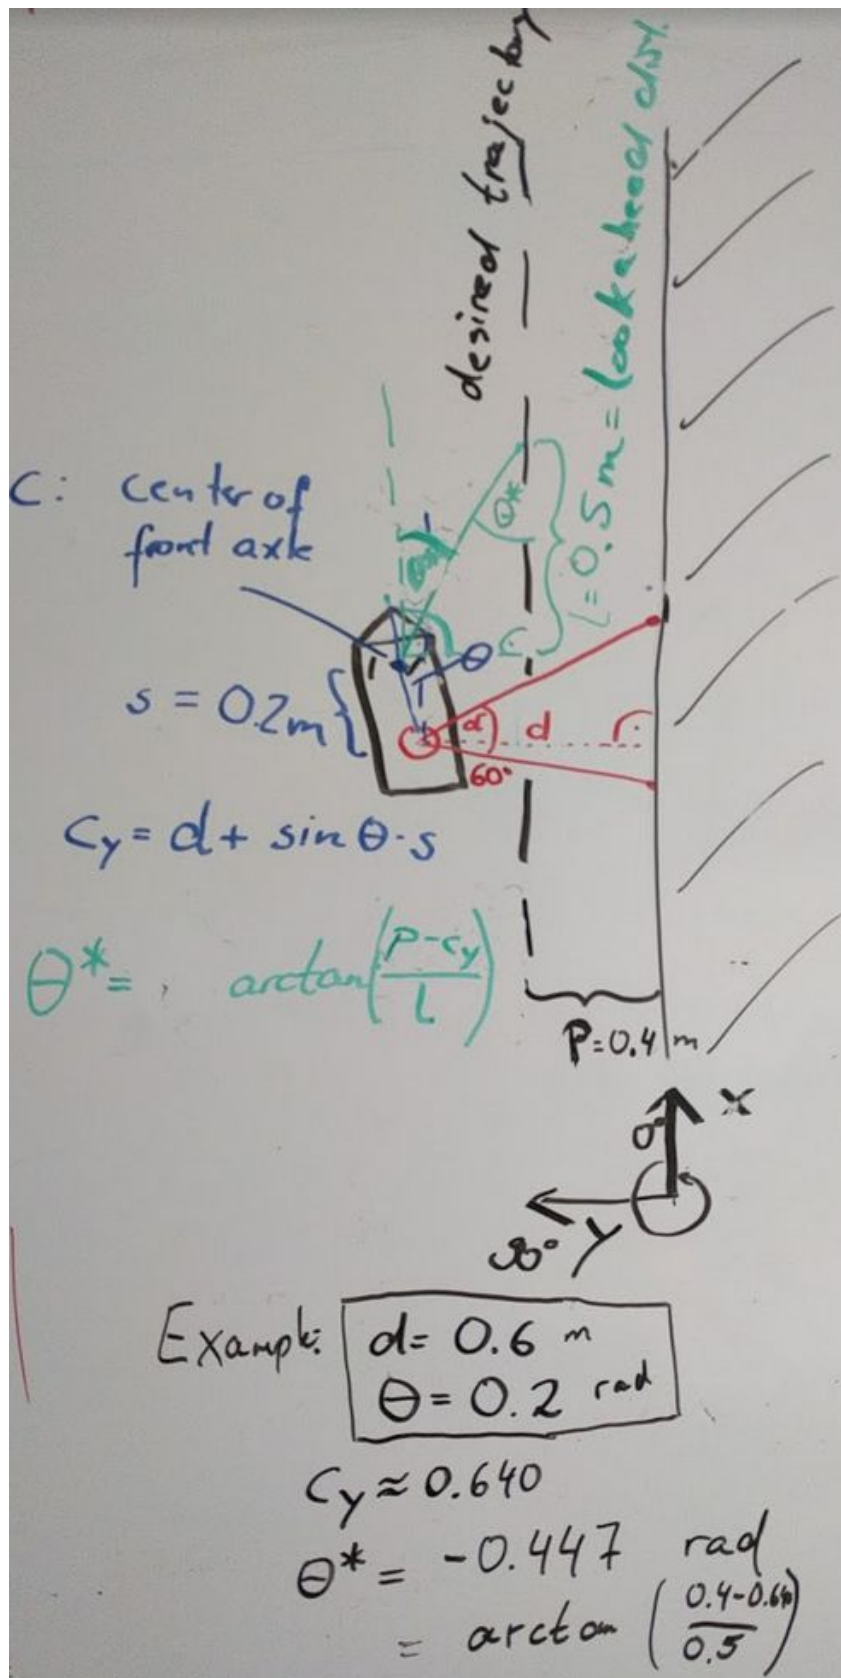 desired trajectory
L=0.5m = lookahead dist.
C: center of
front axle
θ*
θ
s = 0.2m
α
d
60°
Cy = d + sin θ · s
θ* = arctan(P-cy/L)
P=0.4 m
0°
x
90°
y
Example:
d= 0.6 m
θ= 0.2 rad
Cy ≈ 0.640
θ* = -0.447 rad
= arctan (0.4-0.640/0.5)